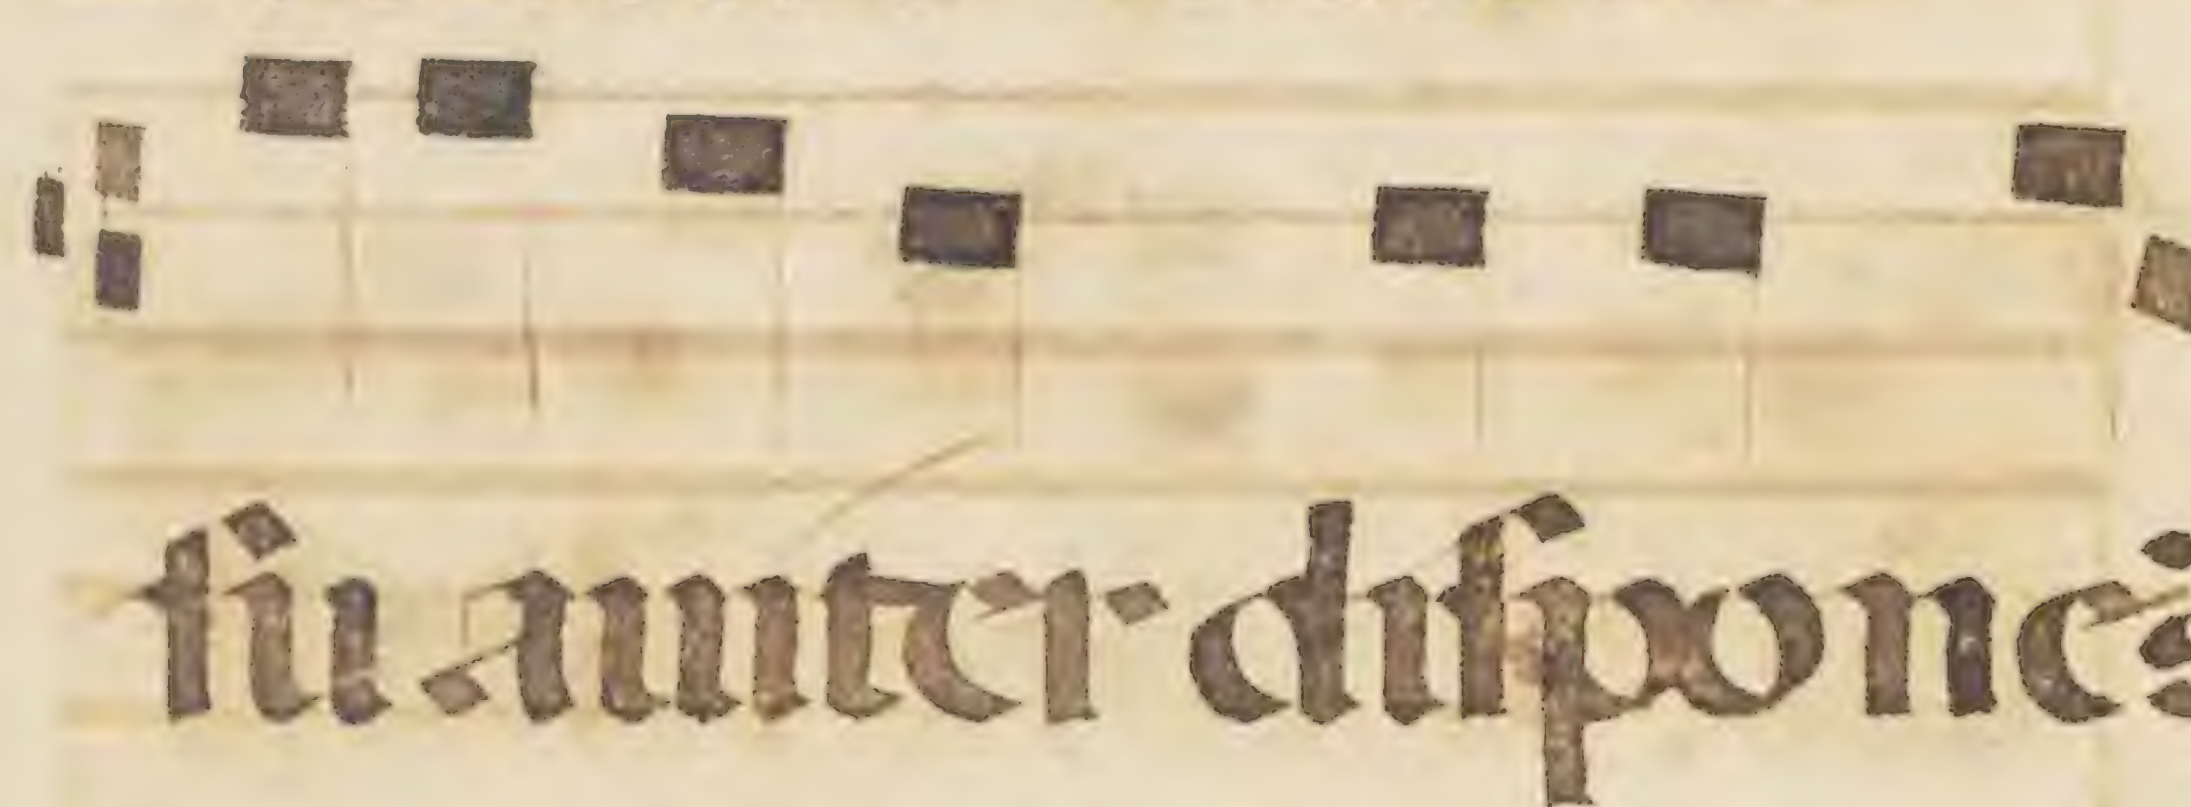 ſuauiter diſpones